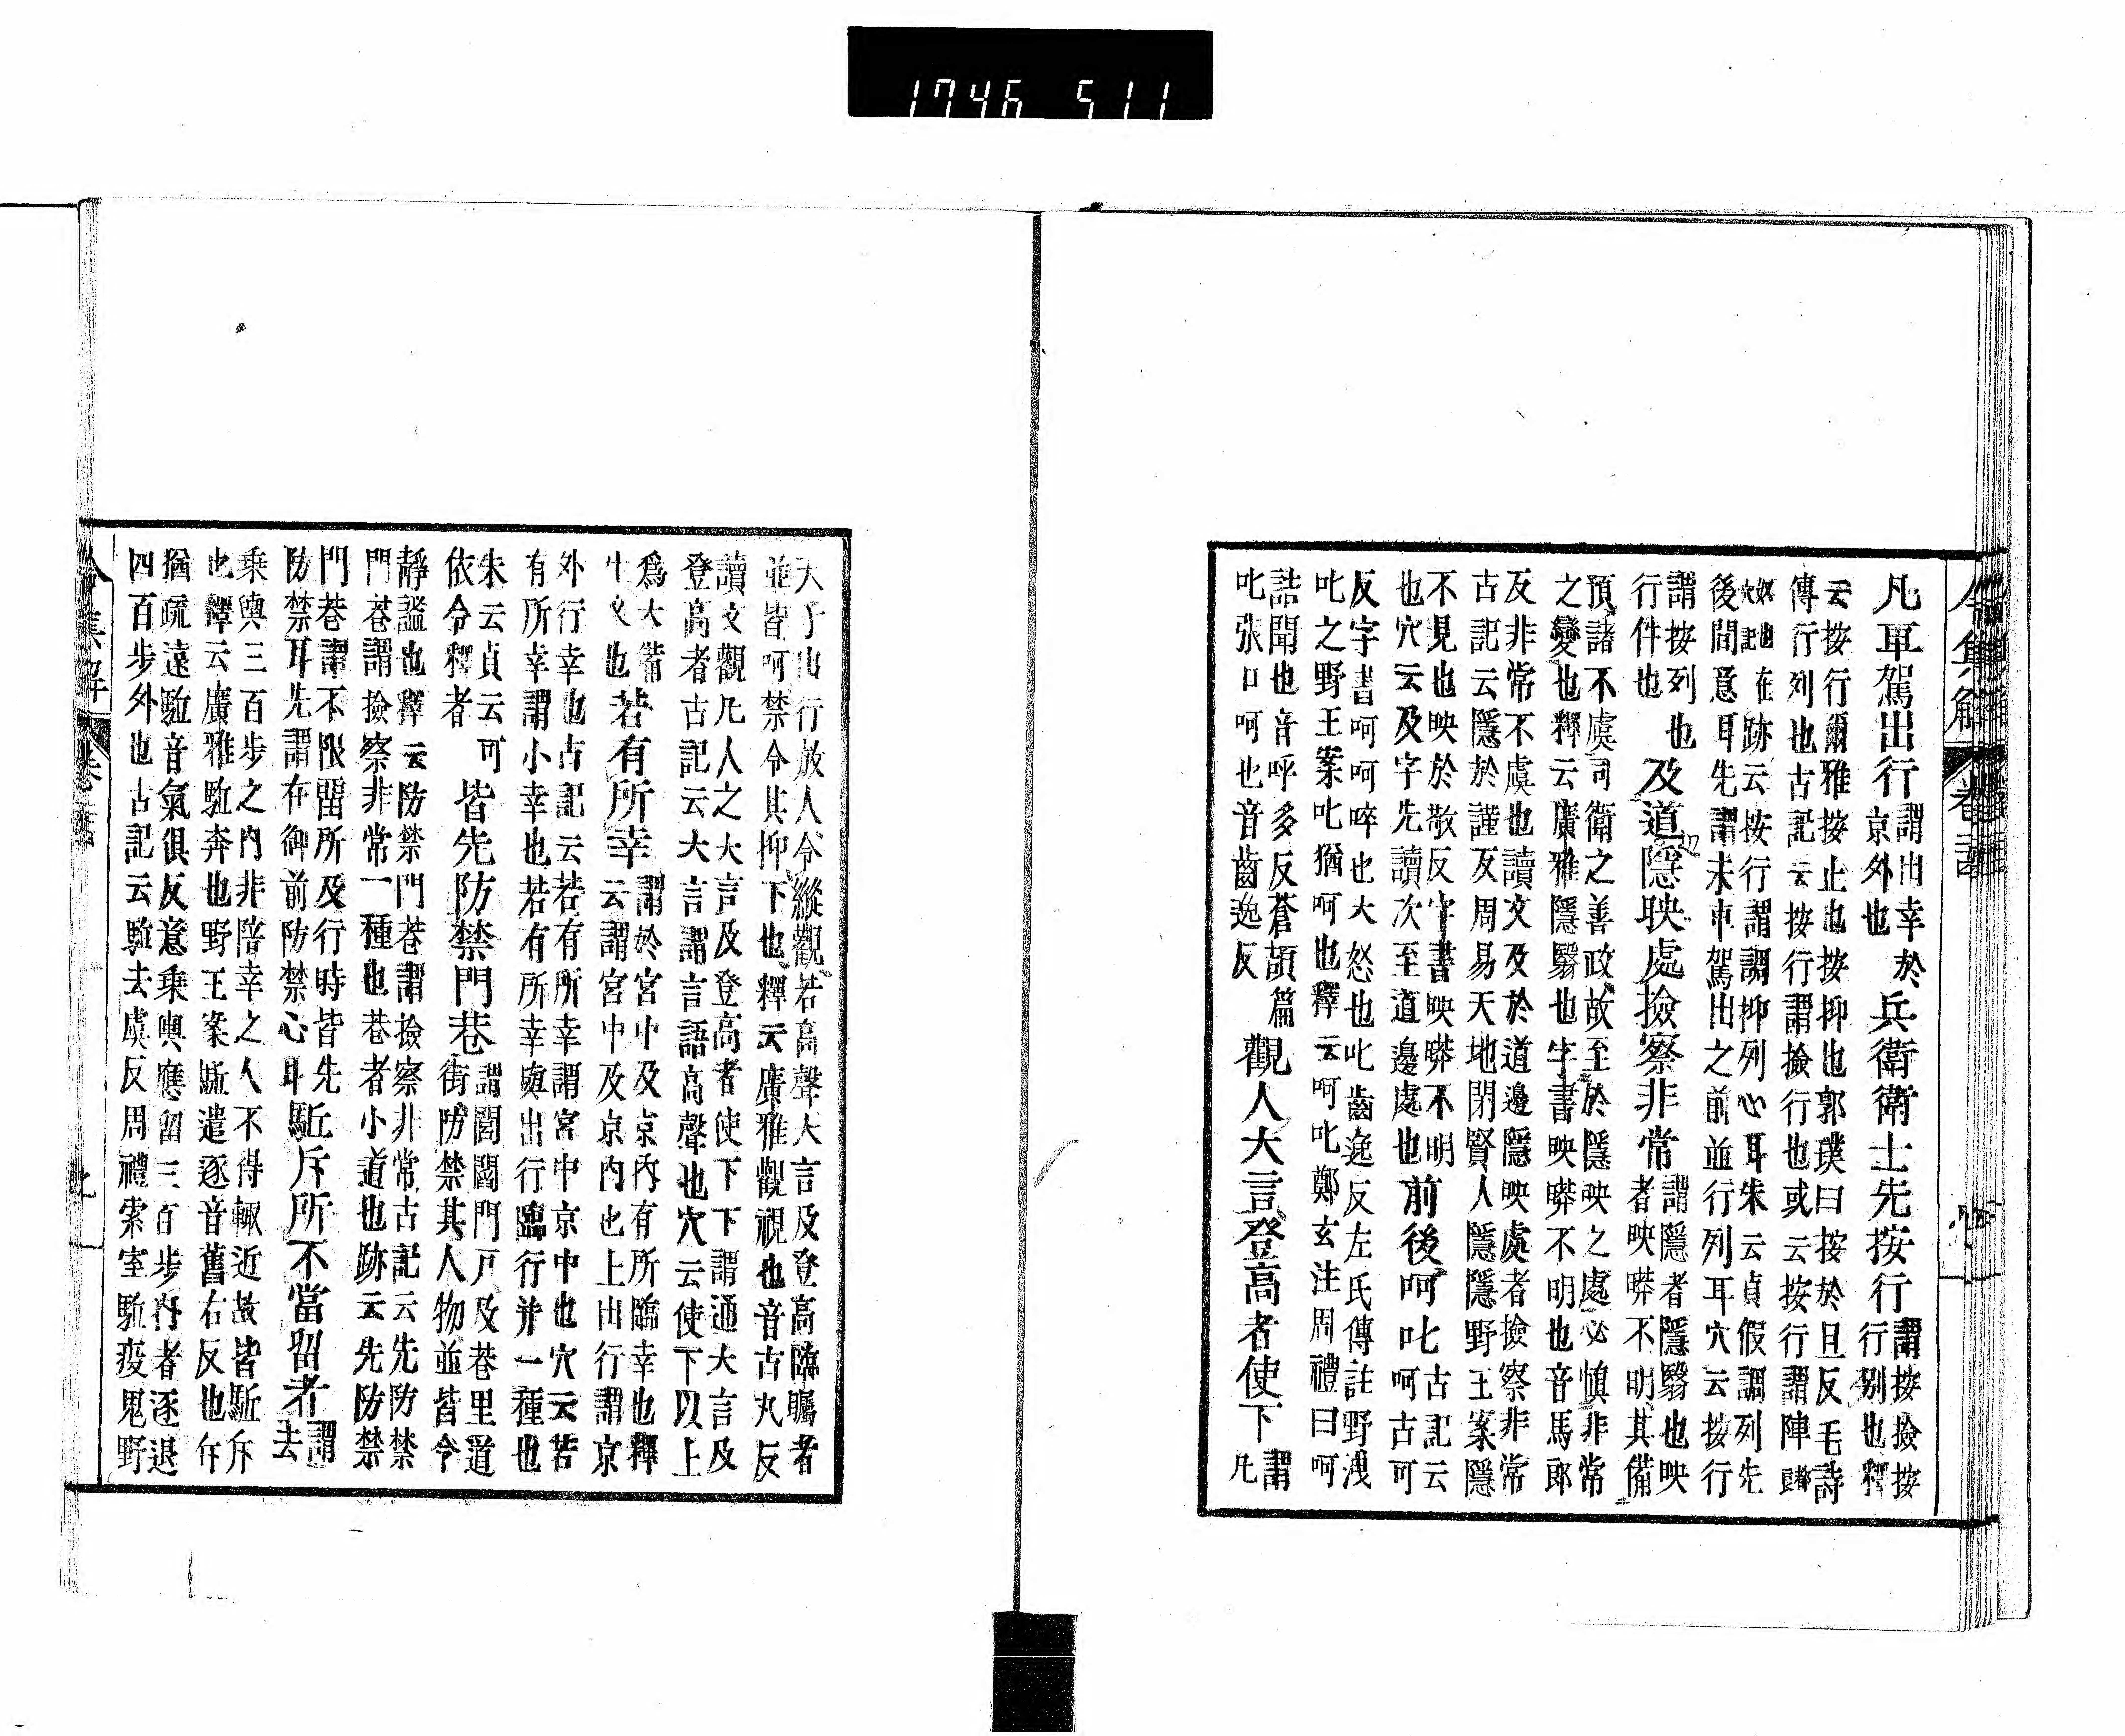 1746 511
凡車駕出行謂出幸於京外也兵衛衛士先按行謂按撿按行列也釋
云按行爾雅按止也按抑也郭璞曰按於旦反毛詩
傳行列也古記云按行謂撿行也或云按行謂陣
在跡云按行謂調抑列心耳朱云貞假調列先
後間意耳先謂未車駕出之前並行列耳穴云按行
謂按列也行件也及道隱映處撿察非常謂隱者隱翳也映者映暎不明其備
預諸不虞司衛之善政故至於隱映之處必慎非常
之變也釋云廣雅隱翳也字書映暎不明也音馬郎
反非常不虞也讀文及於道邊隱映處者撿察非常
古記云隱於謹反周易天地閉賢人隱隱野王案隱
不見也映於敬反字書映暎不明
也穴云及字先讀次至道邊處也前後呵叱古記云呵古可
反字書呵呵啐也大怒也叱齒逸反左氏傳註野洩
叱之野王案叱猶呵也釋云呵叱鄭玄注周禮曰呵
詰聞也音呼多反蒼頡篇
叱張口呵也音齒逸反觀人大言登高者使下謂凡
天子出行放人令縱觀若高聲大言及登高臨矚者
並皆呵禁令其抑下也釋云廣雅觀視也音古丸反
讀文觀凡人之大言及登高者使下下謂通大言及
登高者古記云大言謂言語高聲也穴云使下以上
爲大備
文也若有所幸謂於宮中及京內有所臨幸也釋云謂宮中及京內也上出行謂京
外行幸也古記云若有所幸謂宮中京中也穴云若
有所幸謂小幸也若有所幸與出行臨行并一種也
朱云貞云可
依令釋者皆先防禁門巷謂閭閻門戸及巷里道街防禁其人物並皆令
靜謐也釋云防禁門巷謂撿察非常古記云先防禁
門巷謂撿察非常一種也巷者小道也跡云先防禁
門巷謂不限留所及行時皆先
防禁耳先謂在御前防禁心耳駈斥所不當留者謂去
乘輿三百步之內非陪幸之人不得輙近故皆駈斥
也釋云廣雅駈奔也野王案駈遣逐音舊右反也斥
猶疏遠駈音氣俱反意乘輿應留三百步內者逐退
四百步外也古記云駈去虞反周禮索室駈疫鬼野